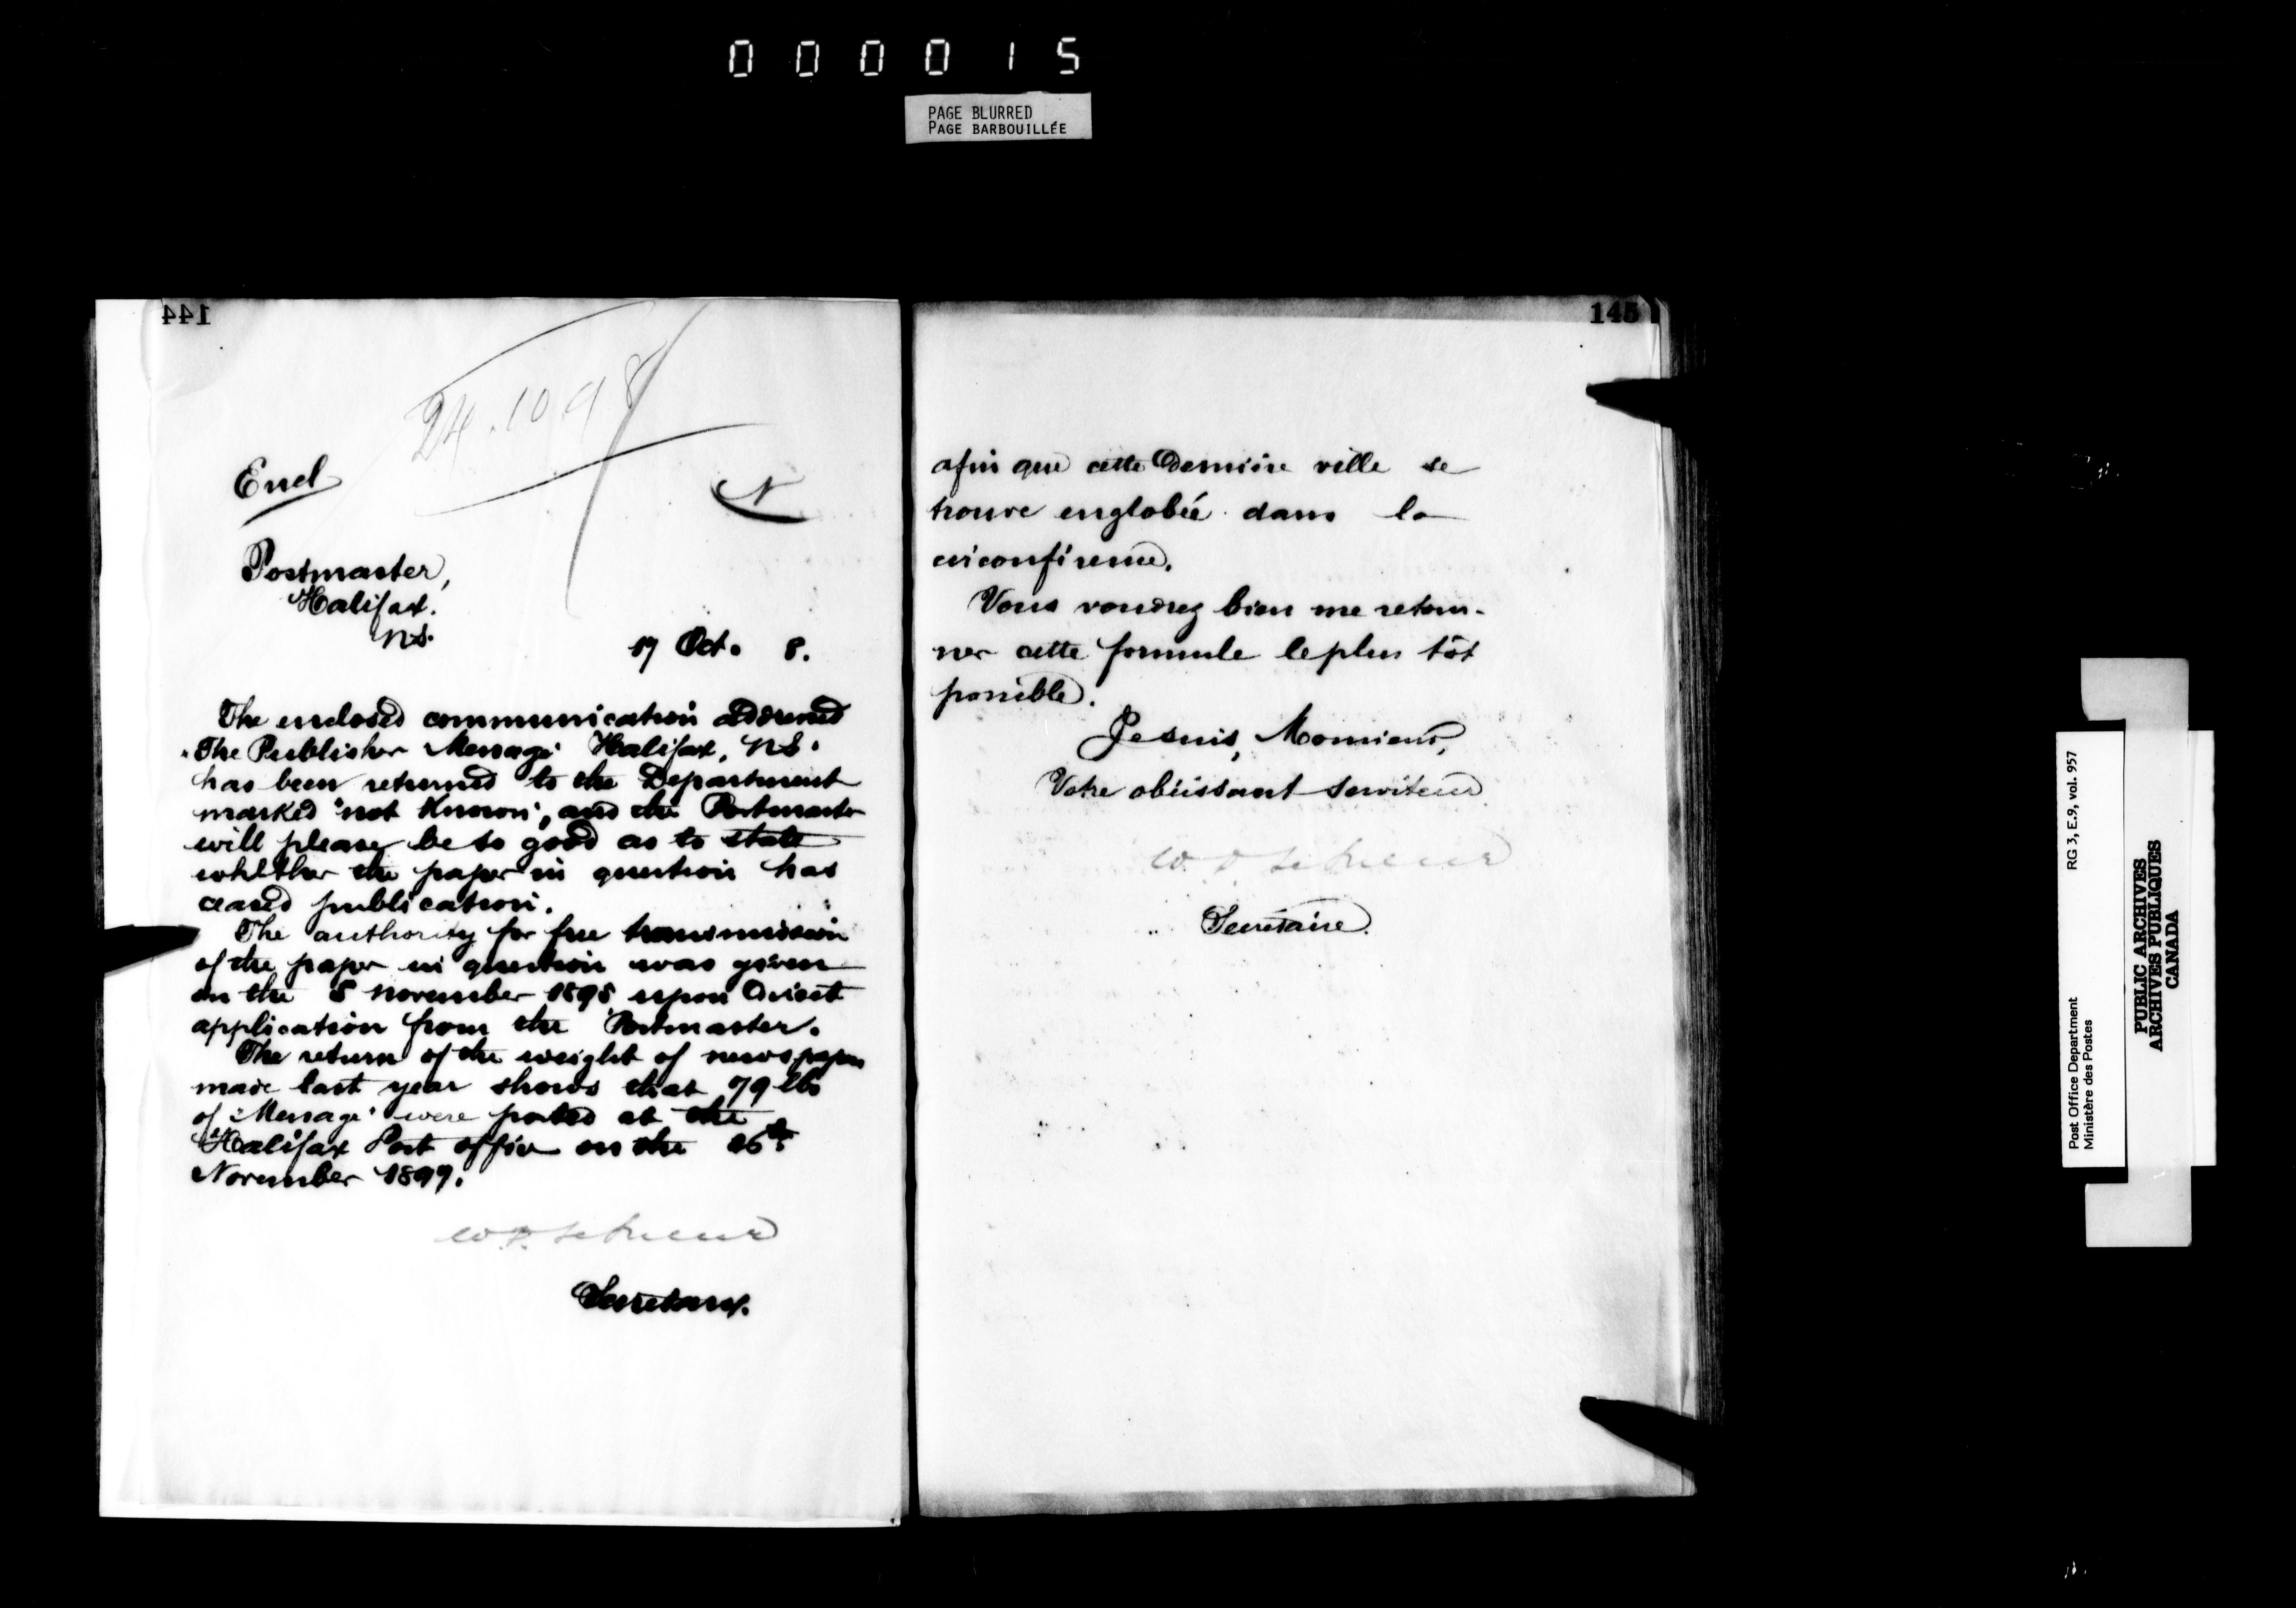 000015
PAGE BLURRED
PAGE BARBOUILLÉE
144
24.10.98
Encl
N
Postmaster,
Halifax.
N.S.
17 Oct. 8.
The enclosed communication addressed
"The Publisher Message" Halifax, N.S.
has been returned to the Department
marked "not Known", and the Postmaster
will please be so good as to state
whether the paper in question has
ceased publication.
The authority for free transmission
of the paper in question was given
on the 8 November 1895 upon direct
application from the Postmaster.
The return of the weight of newspapers
made last year shows that 79 lbs
of "Message" were posted at the
Halifax Post office on the 26th
November 1897.
Secretary.
145
afin que cette dernière ville se
trouve englobée dans la
circonférence.
Vous voudrez bien me retour-
ner cette formule le plus tôt
possible.
Je suis, Monsieur,
Votre obéissant serviteur
Secrétaire.
RG 3, E.9, vol. 957
Post Office Department
Ministère des Postes
PUBLIC ARCHIVES
ARCHIVES PUBLIQUES
CANADA